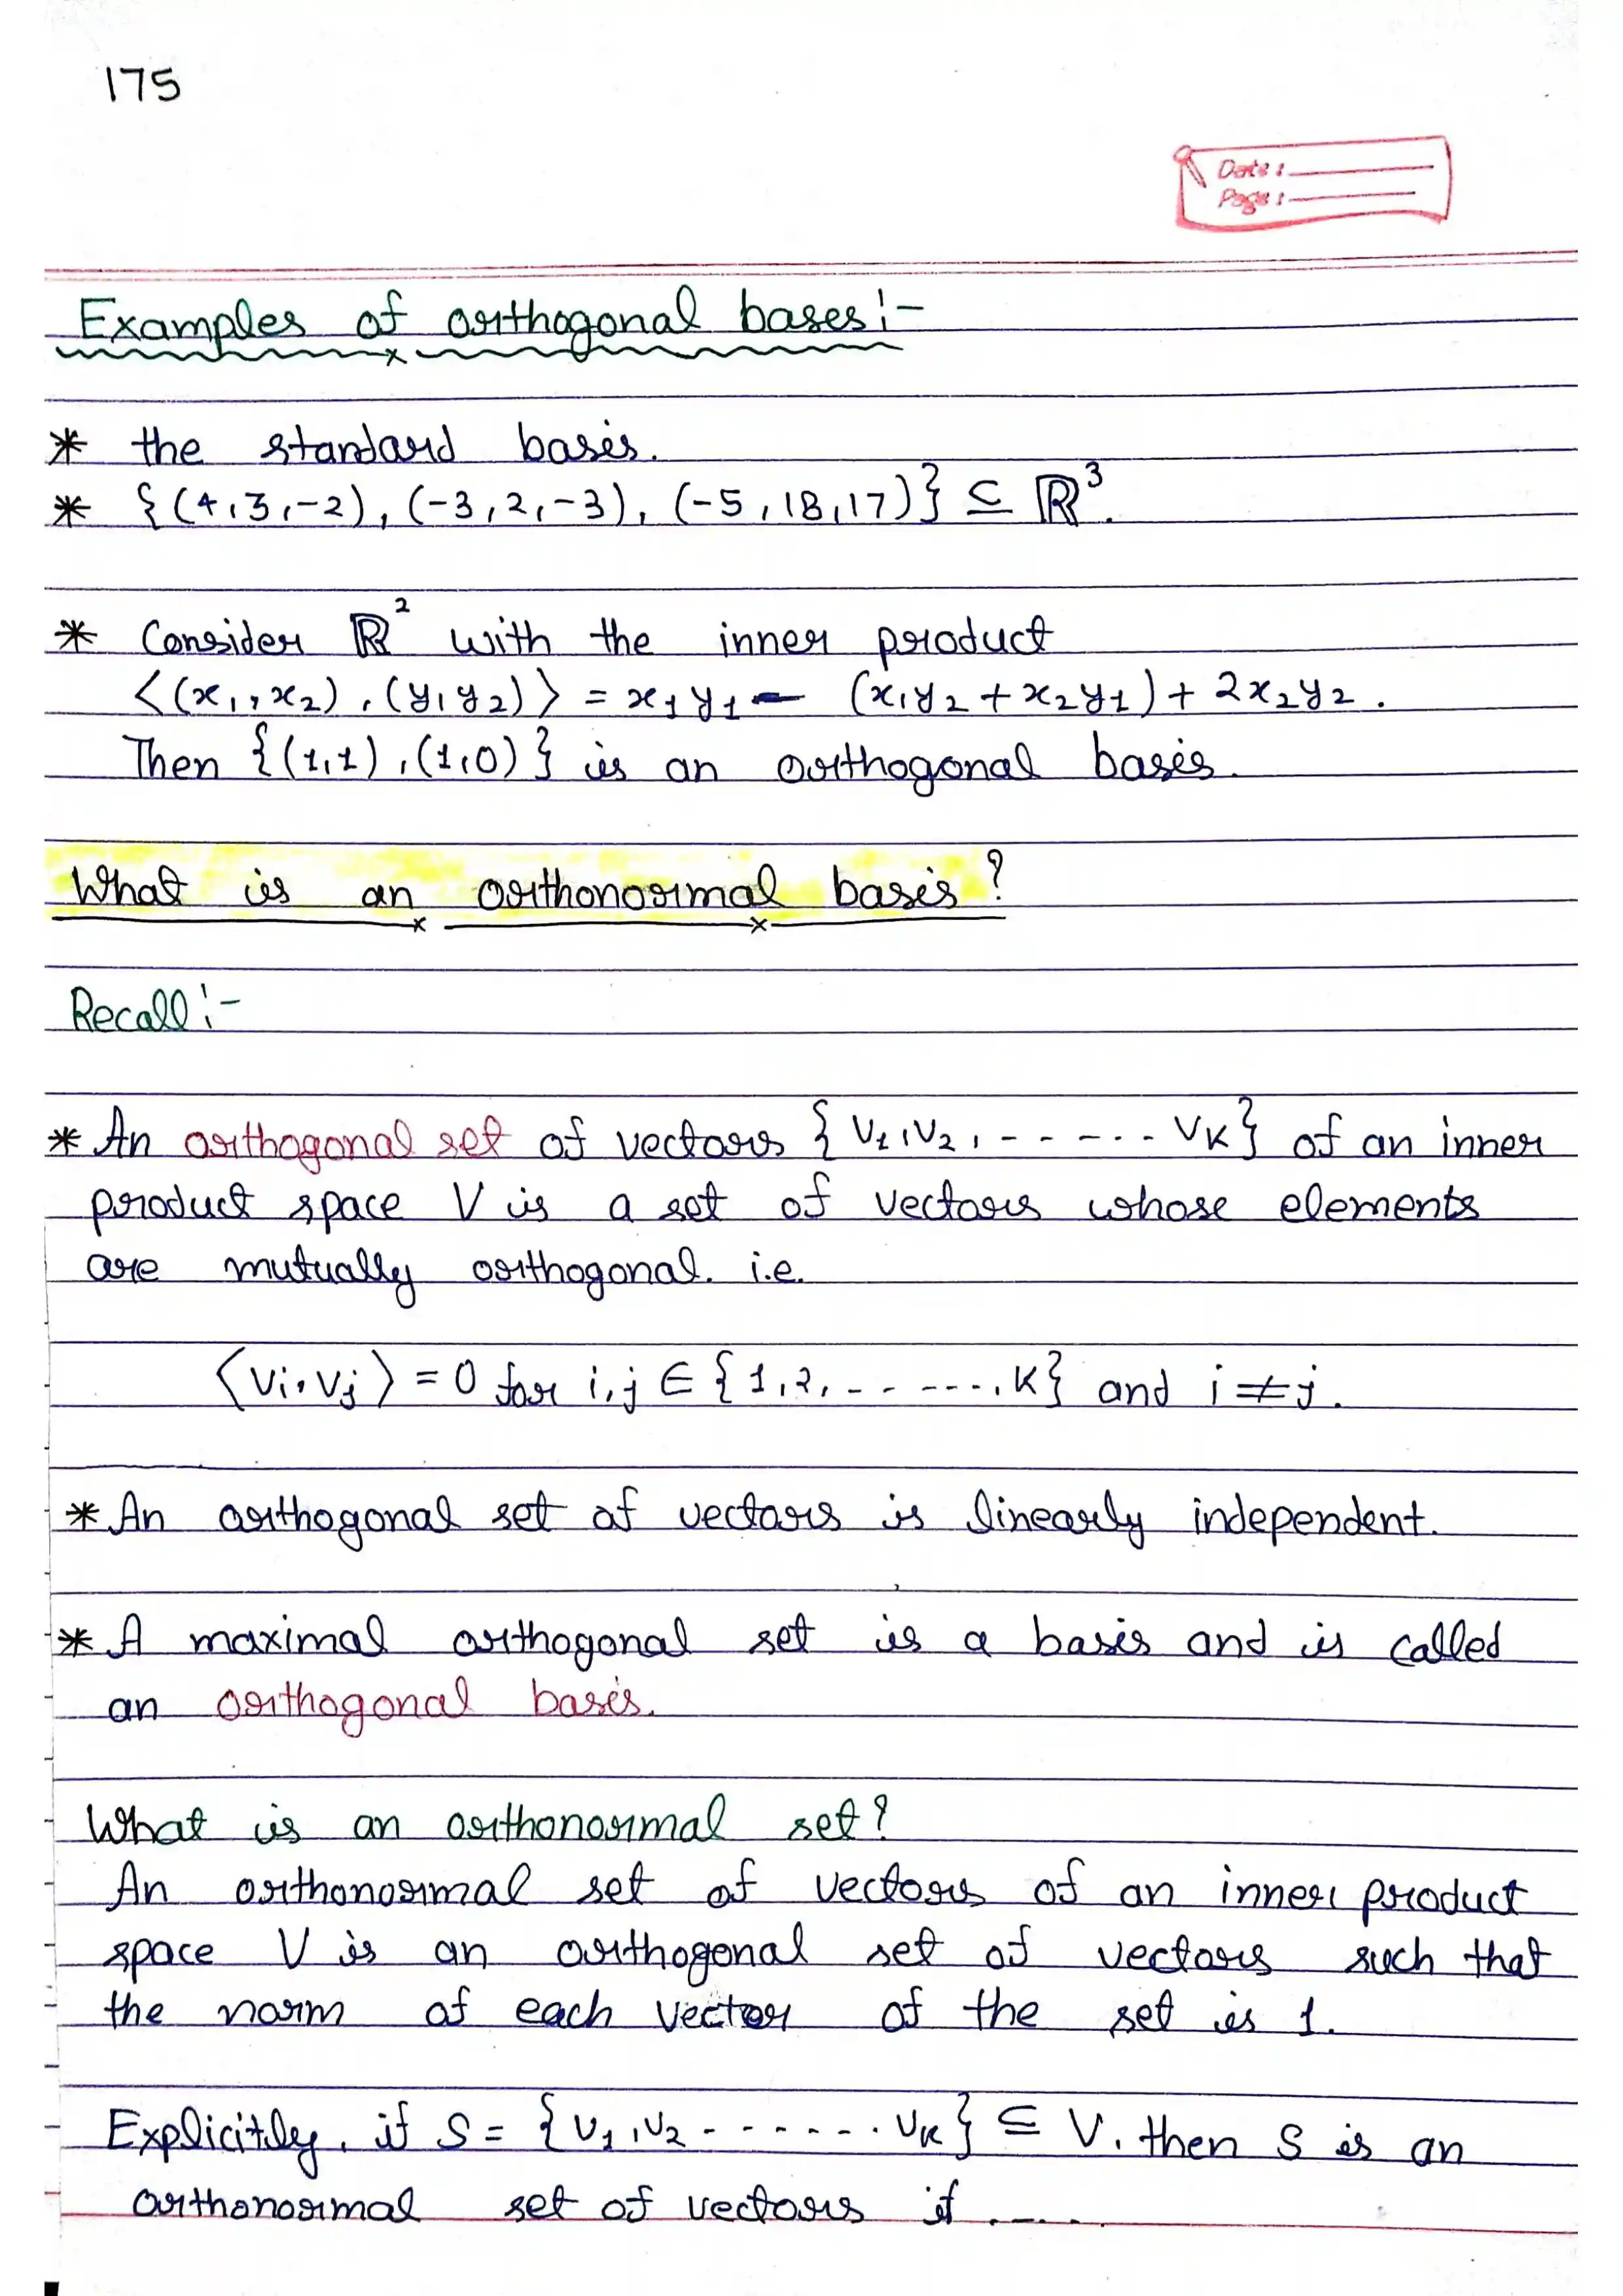 175
Date:
Page:
Examples of orthogonal bases:-
* the standard basis.
* {(4,3,-2), (-3,2,-3), (-5,18,17)} ⊆ ℝ³.
* Consider ℝ² with the inner product
<(x₁,x₂),(y₁y₂)> = x₁y₁ - (x₁y₂ + x₂y₁) + 2x₂y₂.
Then {(1,1),(1,0)} is an orthogonal basis.
What is an orthonormal basis?
Recall:-
* An orthogonal set of vectors {v₁,v₂,------vₖ} of an inner
product space V is a set of vectors whose elements
are mutually orthogonal. i.e.
⟨vi,vj⟩ = 0 for i,j ∈ {1,2,------,k} and i≠j.
* An orthogonal set of vectors is linearly independent.
* A maximal orthogonal set is a basis and is called
an orthogonal basis.
What is an orthonormal set?
An orthonormal set of vectors of an inner product
space V is an orthogonal set of vectors such that
the norm of each vector of the set is 1.
Explicitly, if S = {v₁,v₂-------vₖ} ⊆ V, then S is an
orthonormal set of vectors if .....